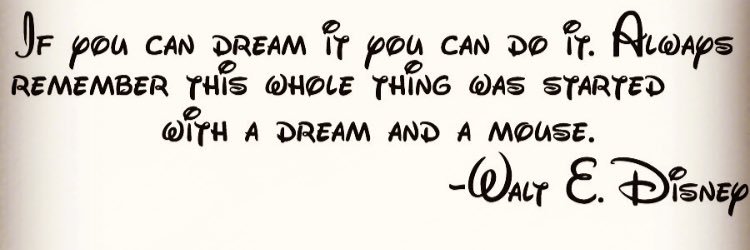 If you can dream it you can do it. Always
remember this whole thing was started
with a dream and a mouse.
-Walt E. Disney